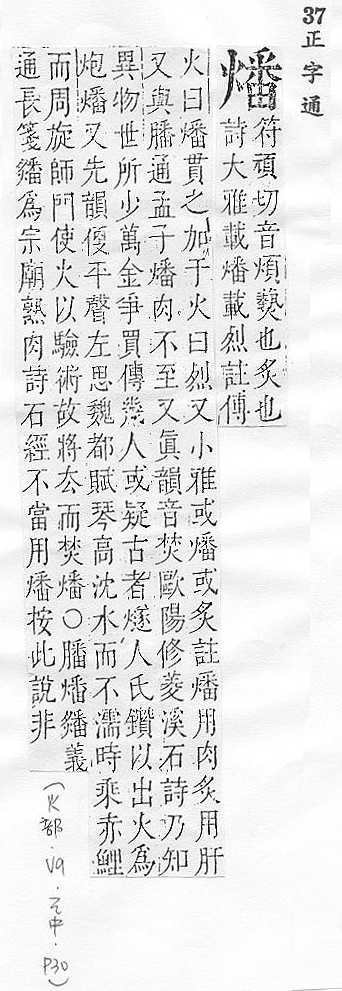 37 正字通
燔
符頑切音煩爇也炙也
詩大雅載燔載烈註傅
火曰燔貫之加于火曰烈又小雅或燔或炙註燔用肉炙用肝
又與膰通孟子燔肉不至又眞韻音焚歐陽修菱溪石詩乃知
異物世所少萬金爭買傳幾人或疑古者燧人氏鑽以出火爲
炮燔又先韻平聲左思魏都賦琴高沈水而不濡時乘赤鯉
而周旋師門使火以驗術故將厺而焚燔○膰燔義
通長箋爲宗廟熟肉詩石經不當用燔按此說非
(火部·V9·巳中·P30)